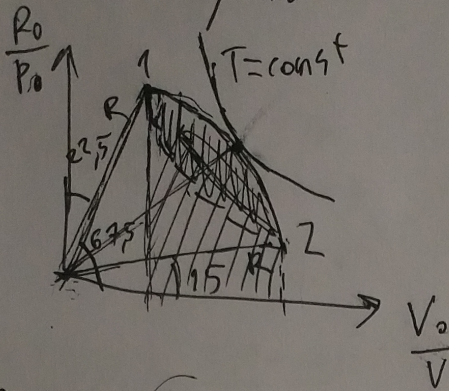 P₀
p₀
1
T=const
R
22,5
67,5
2
R
15
V₀
V